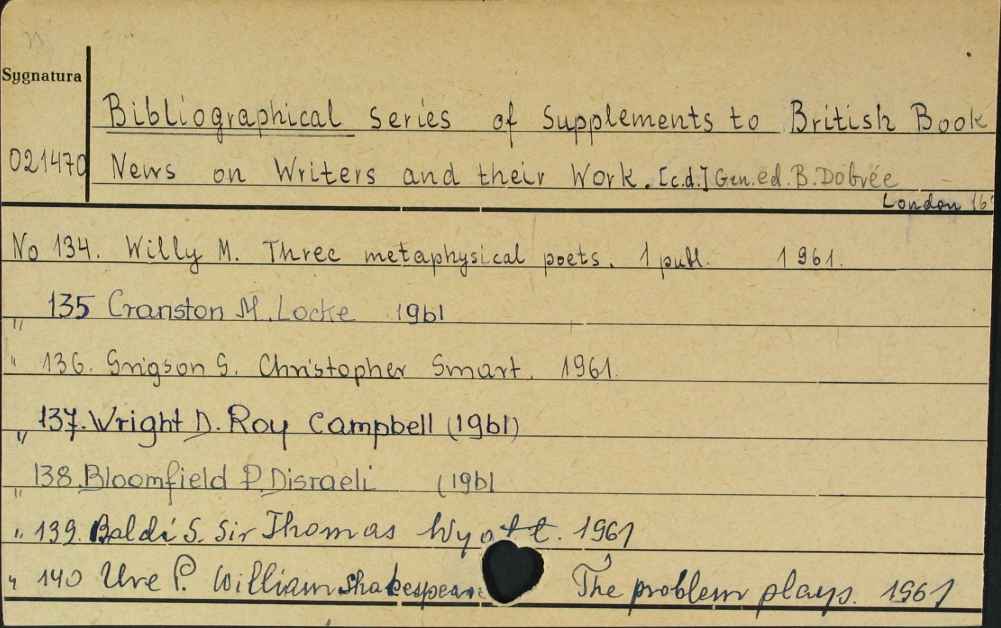 Sygnatura
Bibliographical series of Supplements to British Book
021470 News on Writers and their Work. [c.d.] Gen. ed. B. Dobrée
London
No 134. Willy M. Three metaphysical poets. 1 publ. 1961.
" 135 Cranston M. Locke 1961
" 136. Grigson G. Christopher Smart. 1961.
" 137. Wright D. Roy Campbell (1961)
" 138. Bloomfield P. Disraeli (1961
" 139. Baldi S. Sir Thomas Wyatt. 1961
" 140 Ure P. William Shakespeare The problem plays. 1961